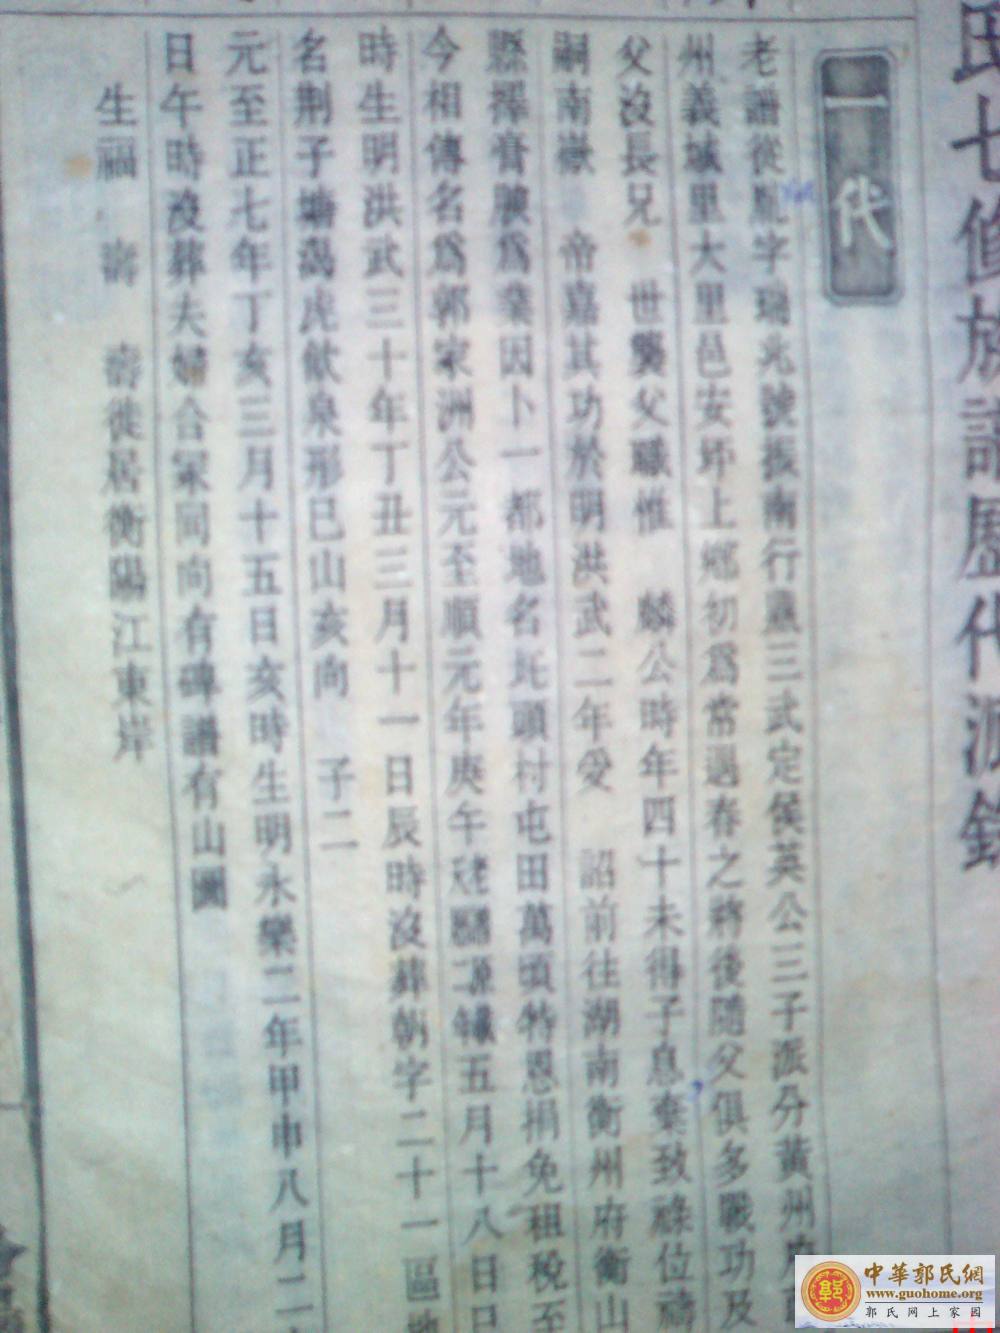 氏七修族譜歷代源錄
一代
老譜從龍字瑞兆號振南行 三武定侯英公三子派分黃州府
州義城里大里邑安坪上鄉初爲常遇春之將後隨父俱多戰功及
父沒長兄 世襲父職惟 麟公時年四十未得子息棄致祿位禱
嗣南嶽 帝嘉其功於明洪武二年受 詔前往湖南衡州府衡山
縣擇膏腴爲業因卜一都地名 頭村屯田萬頃特恩捐免租稅至
今相傳名爲郭家洲公元至順元年庚午 五月十八日日
時生明洪武三十年丁丑三月十一日辰時沒葬 字二十一區地
名荆子塘渴虎飲泉形巳山亥向 子二
元至正七年丁亥三月十五日亥時生明永樂二年甲申八月二
日午時沒葬夫婦合冢同向有碑譜有山圖
生福 壽 壽徙居衡陽江東岸
中華郭氏網
www.guohome.org
郭氏网上家园